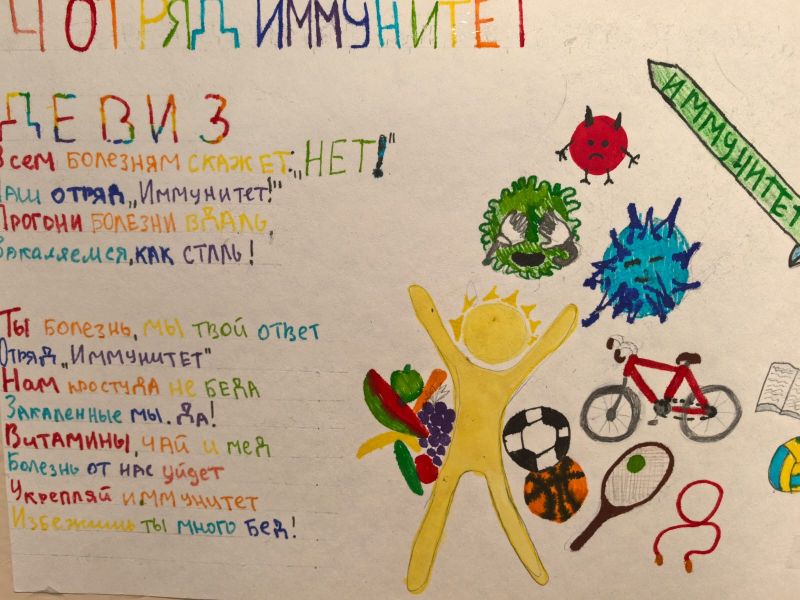 4 ОТРЯД ИММУНИТЕТ
ДЕВИЗ
Всем болезням скажет: „НЕТ!"
Наш отряд „Иммунитет!"
Прогони болезни вдаль,
Закаляемся, как сталь!
Ты болезнь, мы твой ответ
Отряд „Иммунитет"
Нам простуда не беда
Закаленные мы. Да!
Витамины, чай и мед
Болезнь от нас уйдет
Укрепляй иммунитет
Избежишь ты много бед!
ИММУНИТЕТ